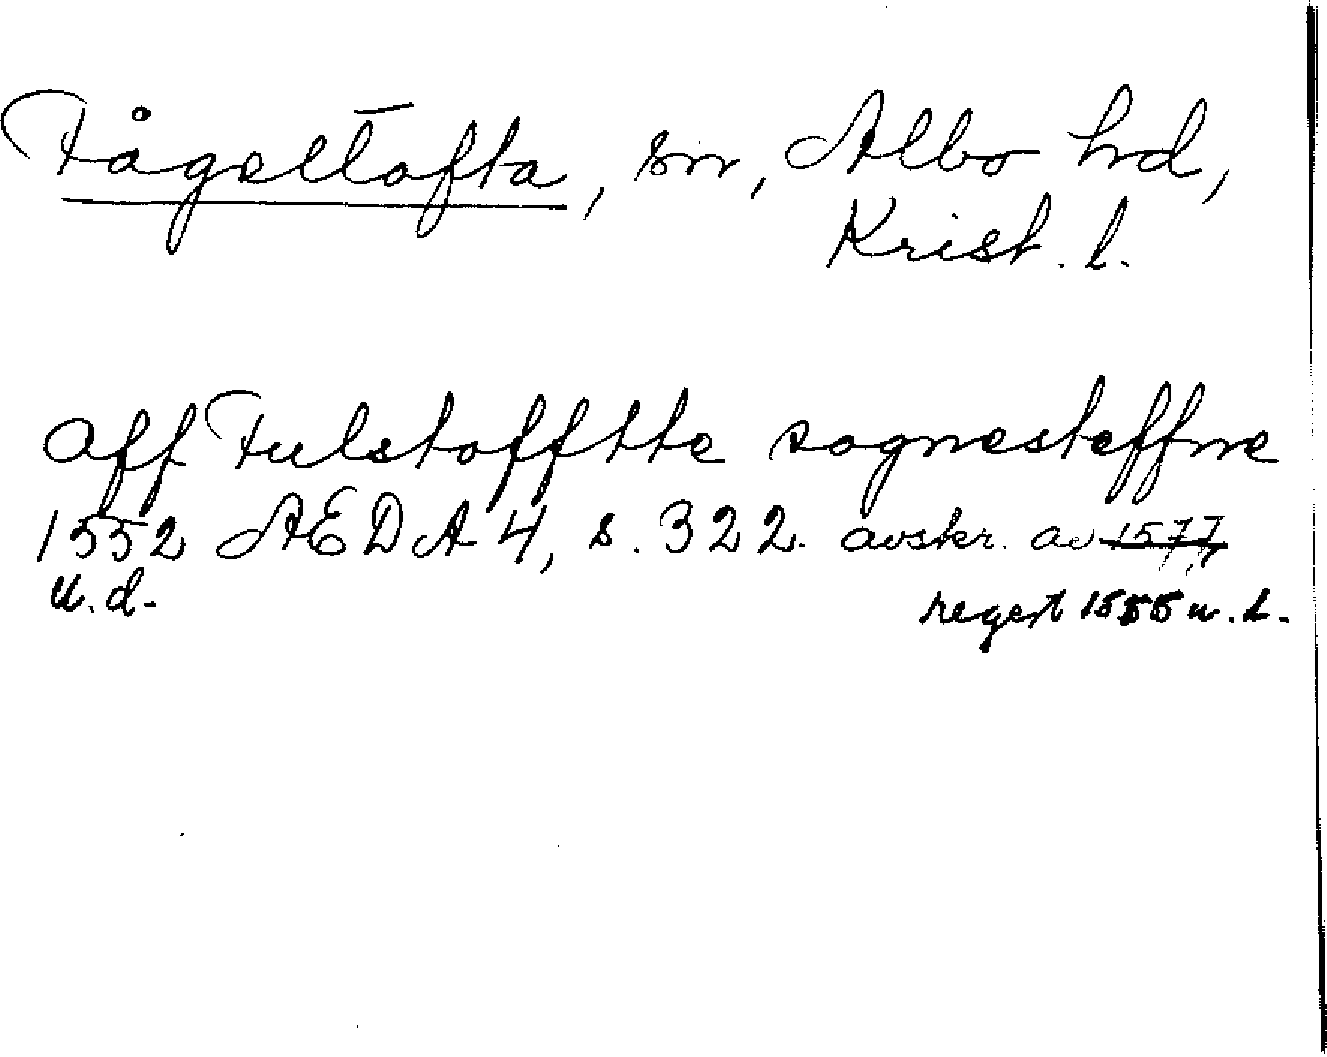 Fågeltofta, sn, Albo hd,
Krist. l.
aff Fulstofftte sognesteffne
1552 AEDA 4, s. 322. avskr. av 1577
u.d. regest 1555 u. d.